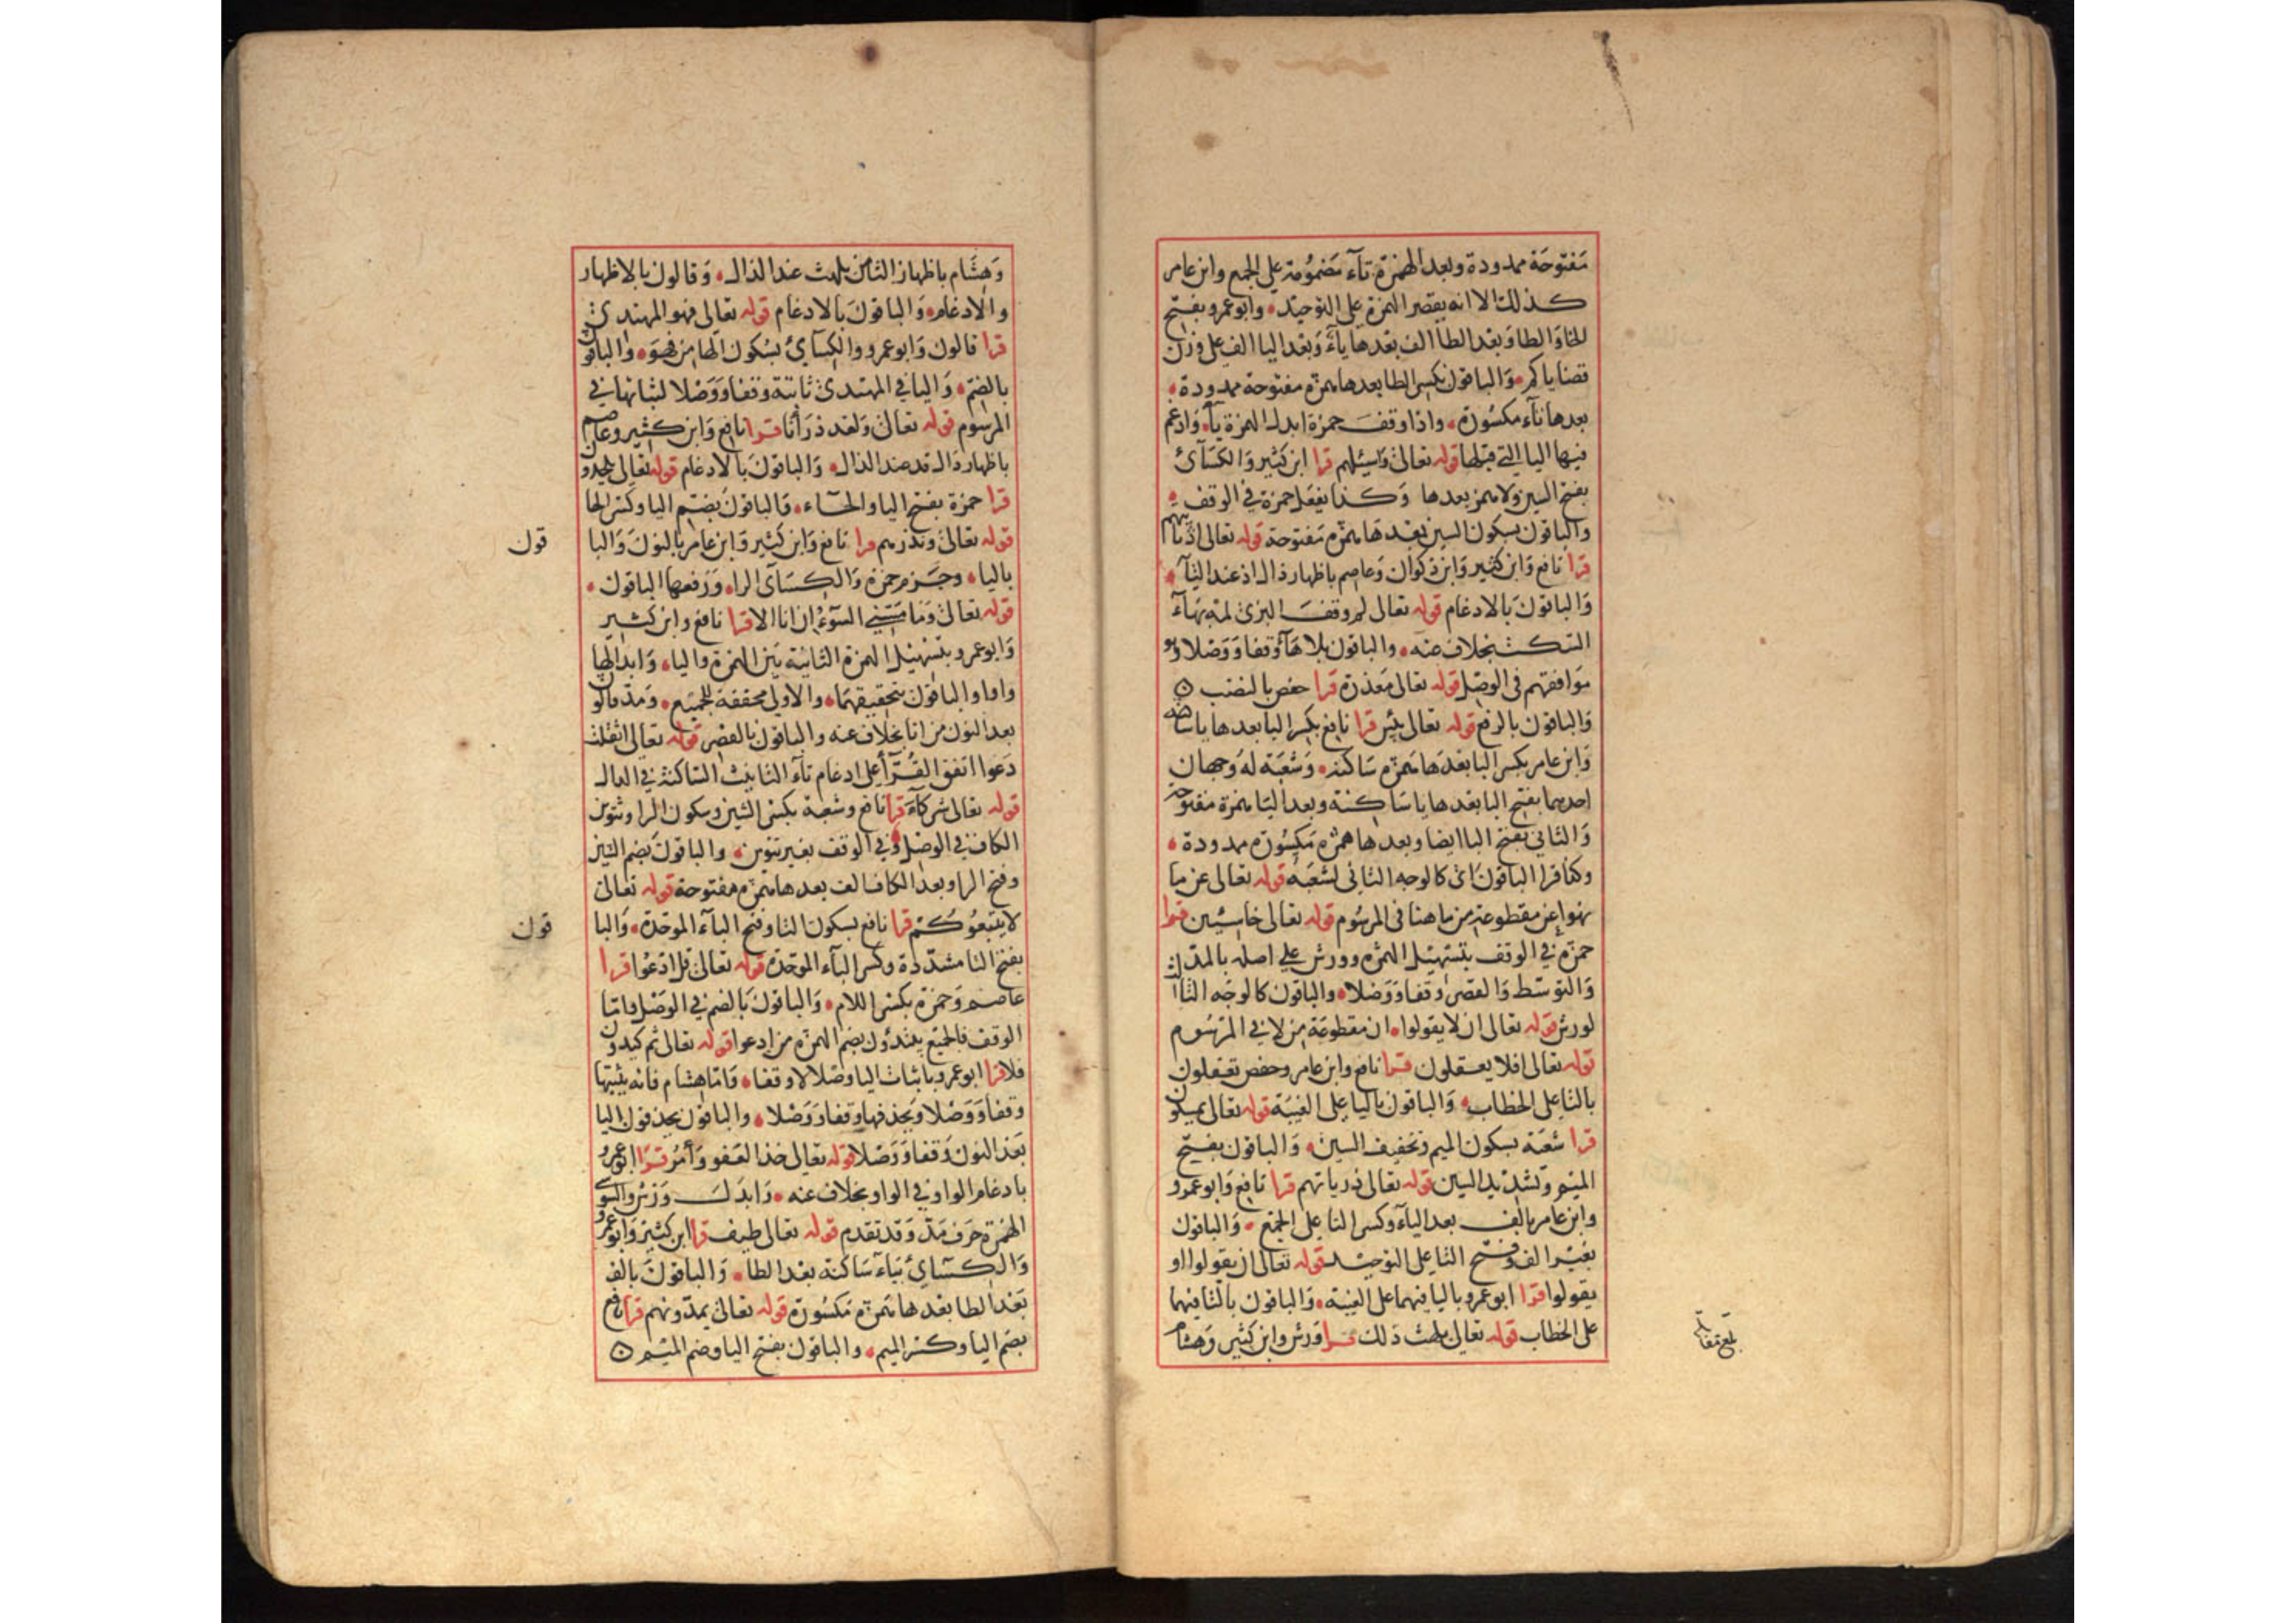 مفتوحة ممدودة وبعد الهمزة تآء مضمومة على الجمع وابن عامر
كذلك الا انه يقصر الهمزة على التوحيد • وابو عمرو بفتح
الخا والطا وبعد الطا الف بعدها يآء وبعد اليا الف على وزن
قضاياكم • والباقون بكسر الطا بعدها همزة مفتوحة ممدودة •
بعدها تآء مكسورة • واذا وقف حمزة ابدل الهمزة يآء وادغم
فيها اليا التي قبلها قوله تعالى واسئلهم قرا ابن كثير والكسآى
بفتح السين ولا همز بعدها وكذا يفعل حمزة في الوقف •
والباقون بسكون السين بعدها همزة مفتوحة قوله تعالى اذ تاتيهم
قرا نافع وابن كثير وابن ذكوان وعاصم باظهار ذال اذ عند التآء
والباقون بالادغام قوله تعالى لم وقف البزى لمه بهآء
السكت بخلاف عنه • والباقون بلا هآء وقفا ووصلا وهو
موافقهم فى الوصل قوله تعالى معذرة قرا حفص بالنصب
والباقون بالرفع قوله تعالى بئس قرا نافع بكسر البا بعدها يا ساكنة
وابن عامر بكسر البا بعدها همزة ساكنة • وشعبة له وجهان
احدهما بفتح البا بعدها يا ساكنة وبعد اليا همزة مفتوحة
والثانى بفتح البا ايضا وبعدها همزة مكسورة ممدودة •
وكذا قرا الباقون اى كالوجه الثانى لشعبة قوله تعالى عن ما
نهوا عن مقطوعة من ما هنا فى المرسوم قوله تعالى خاسئين قرا
حمزة في الوقف بتسهيل الهمزة وورش على اصله بالمد
والتوسط والقصر وقفا ووصلا • والباقون كالوجه الثالث
لورش قوله تعالى ان لا يقولوا • ان مقطوعة من لا في المرسوم
قوله تعالى افلا يعقلون قرا نافع وابن عامر وحفص تعقلون
بالتا على الخطاب • والباقون باليا على الغيبة قوله تعالى يمسكون
قرا شعبة بسكون الميم وتخفيف السين • والباقون بفتح
الميم وتشديد السين قوله تعالى ذرياتهم قرا نافع وابو عمرو
وابن عامر بالف بعد اليآء وكسر التا على الجمع • والباقون
بغير الف وفتح التا على التوحيد قوله تعالى ان يقولوا او
يقولوا قرا ابو عمرو باليا فيهما على الغيبة • والباقون بالتا فيهما
على الخطاب قوله تعالى يلهث ذلك قرا ورش وابن كثير وهشام
بلغ مقابلة
وهشام باظهار الثا من يلهث عند الذال • وقالون بالاظهار
والادغام • والباقون بالادغام قوله تعالى فهو المهتدى
قرا قالون وابو عمرو والكسآى بسكون الها من فهو • والباقون
بالضم • واليا في المهتدى ثابتة وقفا ووصلا لثباتها في
المرسوم قوله تعالى ولقد ذرأنا قرا نافع وابن كثير وعاصم
باظهار دال قد عند الذال • والباقون بالادغام قوله تعالى يلحدون
قرا حمزة بفتح اليا والحآء • والباقون بضم اليا وكسر الحا
قوله تعالى ونذرهم قرا نافع وابن كثير وابن عامر بالنون والبا
قون
باليا • وجزم حمزة والكسآى الرا • ورفعها الباقون •
قوله تعالى وما مسني السوء ان انا الا قرا نافع وابن كثير
وابو عمرو بتسهيل الهمزة الثانية بين الهمزة واليا • وابدالها
واوا والباقون بتحقيقهما • والاولى محققة للجميع • ومد قالون
بعد النون من انا بخلاف عنه والباقون بالقصر قوله تعالى اثقلت
دعوا اتفق القرآء على ادغام تآء التانيث الساكنة في الدال
قوله تعالى شركآء قرا نافع وشعبة بكسر الشين وسكون الرا وتنوين
الكاف في الوصل وفي الوقف بغير تنوين • والباقون بضم الشين
وفتح الرا وبعد الكاف الف بعدها همزة مفتوحة قوله تعالى
لا يتبعوكم قرا نافع بسكون التا وفتح البآء الموحدة • والبا
قون
بفتح التا مشددة وكسر البآء الموحدة قوله تعالى قل ادعوا قرا
عاصم وحمزة بكسر اللام • والباقون بالضم في الوصل واما
الوقف فالجميع يبتدؤن بضم الهمزة من ادعوا قوله تعالى ثم كيدون
فلا قرا ابو عمرو باثبات اليا وصلا لا وقفا • واما هشام فانه يثبتها
وقفا ووصلا ويحذفها وقفا ووصلا • والباقون يحذفون اليا
بعد النون وقفا ووصلا قوله تعالى خذ العفو وأمر قرا ابو عمرو
بادغام الواو في الواو بخلاف عنه • وابدل ورش والسوسى
الهمزة حرف مد وقد تقدم قوله تعالى طيف قرا ابن كثير وابو عمرو
والكسآى بياء ساكنة بعد الطا • والباقون بالف
بعد الطا بعدها همزة مكسورة قوله تعالى يمدونهم قرا نافع
بضم اليا وكسر الميم • والباقون بفتح اليا وضم الميم